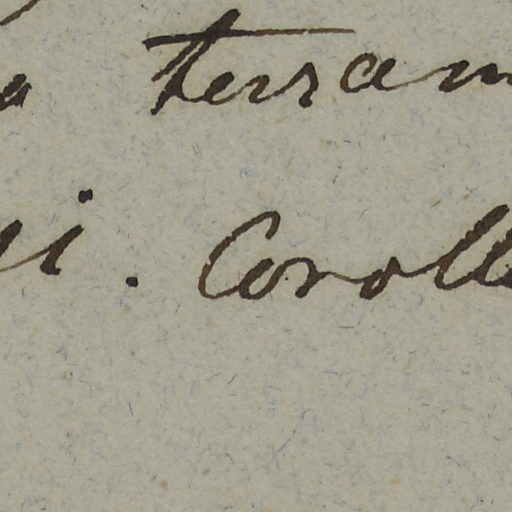 a terram
i. Coroll